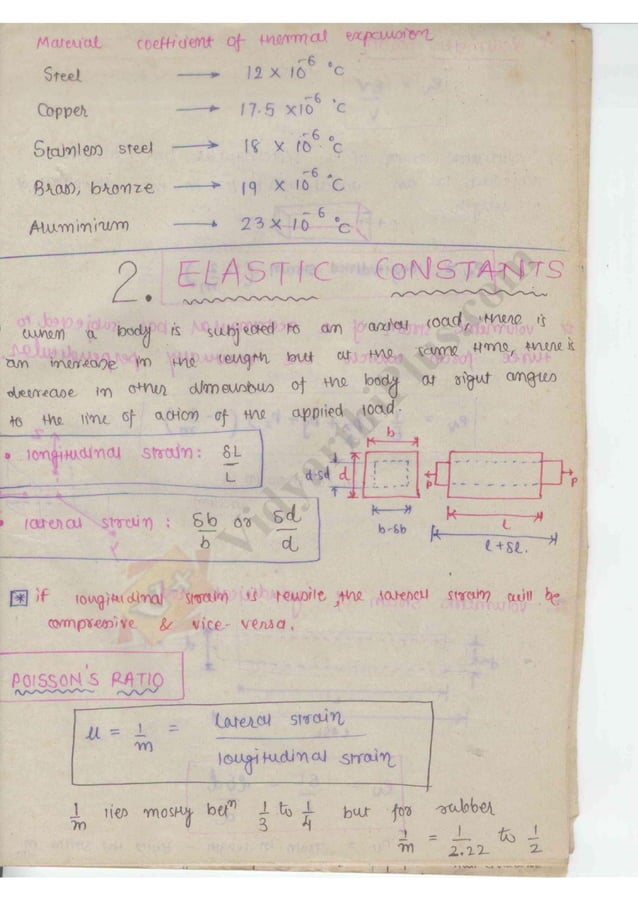 Material coefficient of thermal expansion
Steel → 12 × 10⁻⁶ °C
Copper → 17.5 × 10⁻⁶ °C
Stainless steel → 18 × 10⁻⁶ °C
Brass, bronze → 19 × 10⁻⁶ °C
Aluminium → 23 × 10⁻⁶ °C
2. ELASTIC CONSTANTS
when a body is subjected to an axial load, there is
an increase in the length but at the same time there is
decrease in other dimensions of the body at right angles
to the line of action of the applied load.
• longitudinal strain: δL/L
• lateral strain: δb/b or δd/d
b
d-δd
d
b-δb
P
P
l
l+δl.
* if longitudinal strain is tensile, the lateral strain will be
compressive & vice-versa.
POISSON'S RATIO
μ = 1/m = lateral strain / longitudinal strain
1/m lies mostly betⁿ 1/3 to 1/4 but for rubber
1/m = 1/2.22 to 1/2
VidyarthiPlus.com
V+